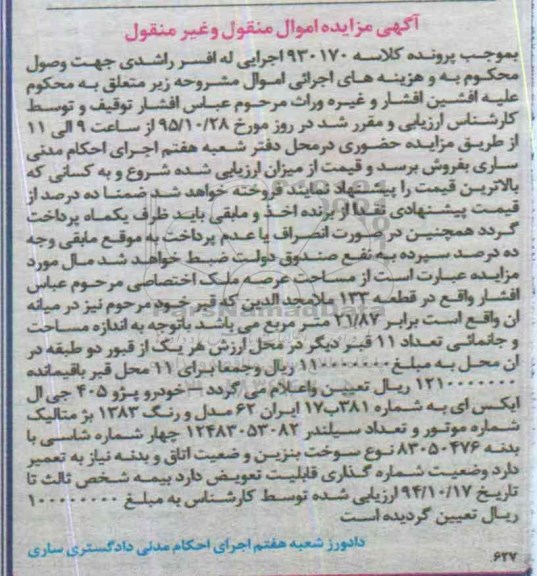 آگهی مزایده اموال منقول وغیر منقول
بموجب پرونده کلاسه ۹۳۰۱۷۰ اجرایی له افسر راشدی جهت وصول
محکوم به و هزینه های اجرائی اموال مشروحه زیر متعلق به محکوم
علیه افشین افشار و غیره وراث مرحوم عباس افشار توقیف و توسط
کارشناس ارزیابی و مقرر شد در روز مورخ ۹۵/۱۰/۲۸ از ساعت ۹ الی ۱۱
از طریق مزایده حضوری درمحل دفتر شعبه هفتم اجرای احکام مدنی
ساری بفروش برسد و قیمت از میزان ارزیابی شده شروع و به کسانی که
بالاترین قیمت را پیشنهاد نمایند فروخته خواهد شد ضمنا ده درصد از
قیمت پیشنهادی نقدا از برنده اخذ و مابقی باید ظرف یکماه پرداخت
گردد همچنین در صورت انصراف یا عدم پرداخت به موقع مابقی وجه
ده درصد سپرده به نفع صندوق دولت ضبط خواهد شد مال مورد
مزایده عبارت است از مساحت عرصه ملک اختصاصی مرحوم عباس
افشار واقع در قطعه ۱۳۳ ملامجد الدین که قبر خود مرحوم نیز در میانه
ان واقع است برابر ۲۱/۸۷ متر مربع می باشد باتوجه به اندازه مساحت
و جانمائی تعداد ۱۱ قبر دیگر در محل ارزش هر یک از قبور دو طبقه در
ان محل به مبلغ ریال وجمعا برای ۱۱ محل قبر باقیمانده
۱۲۱۰۰۰۰۰۰۰ ریال تعیین واعلام می گردد ۲-خودرو پژو ۴۰۵ جی ال
ایکس ای به شماره ۳۸۱ب۱۷ ایران ۶۲ مدل و رنگ ۱۳۸۳ بژ متالیک
شماره موتور و تعداد سیلندر ۱۲۴۸۳۰۵۳۰۸۲ چهار شماره شاسی با
بدنه ۸۳۰۵۰۴۷۶ نوع سوخت بنزین و ضعیت اتاق و بدنه نیاز به تعمیر
دارد وضعیت شماره گذاری قابلیت تعویض دارد بیمه شخص ثالث تا
تاریخ ۹۴/۱۰/۱۷ ارزیابی شده توسط کارشناس به مبلغ ۱۰۰۰۰۰۰۰۰
ریال تعیین گردیده است
دادورز شعبه هفتم اجرای احکام مدنی دادگستری ساری
۶۲۷
ParsNamadData